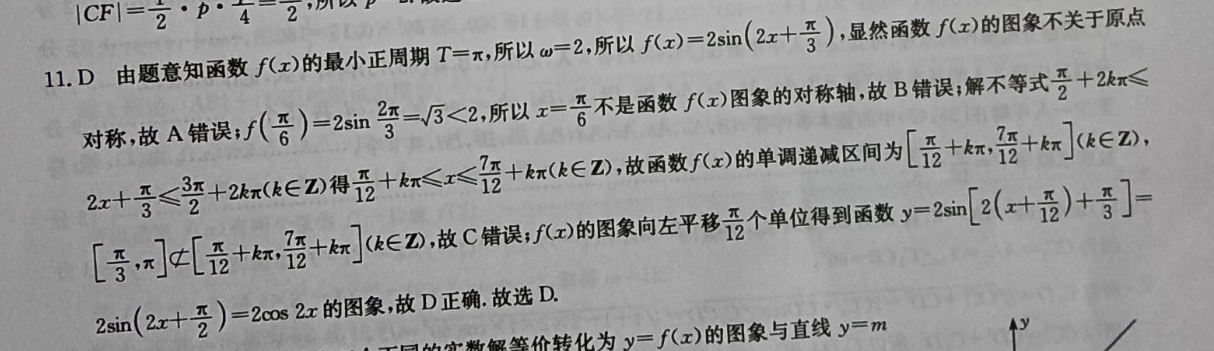 |CF|=1/2·p·1/4=
11. D 由题意知函数 f(x)的最小正周期 T=π,所以 ω=2,所以 f(x)=2sin(2x+π/3),显然函数 f(x)的图象不关于原点
对称,故 A 错误;f(π/6)=2sin 2π/3=√3<2,所以 x=π/6不是函数 f(x)图象的对称轴,故 B 错误;解不等式π/2+2kπ≤
2x+π/3≤3π/2+2kπ(k∈Z)得π/12+kπ≤x≤7π/12+kπ(k∈Z),故函数 f(x)的单调递减区间为[π/12+kπ,7π/12+kπ](k∈Z),
[π/3,π]⊄[π/12+kπ,7π/12+kπ](k∈Z),故 C 错误;f(x)的图象向左平移π/12个单位得到函数 y=2sin[2(x+π/12)+π/3]=
2sin(2x+π/2)=2cos 2x 的图象,故 D 正确.故选 D.
不同的实数解等价转化为 y=f(x)的图象与直线 y=m
y